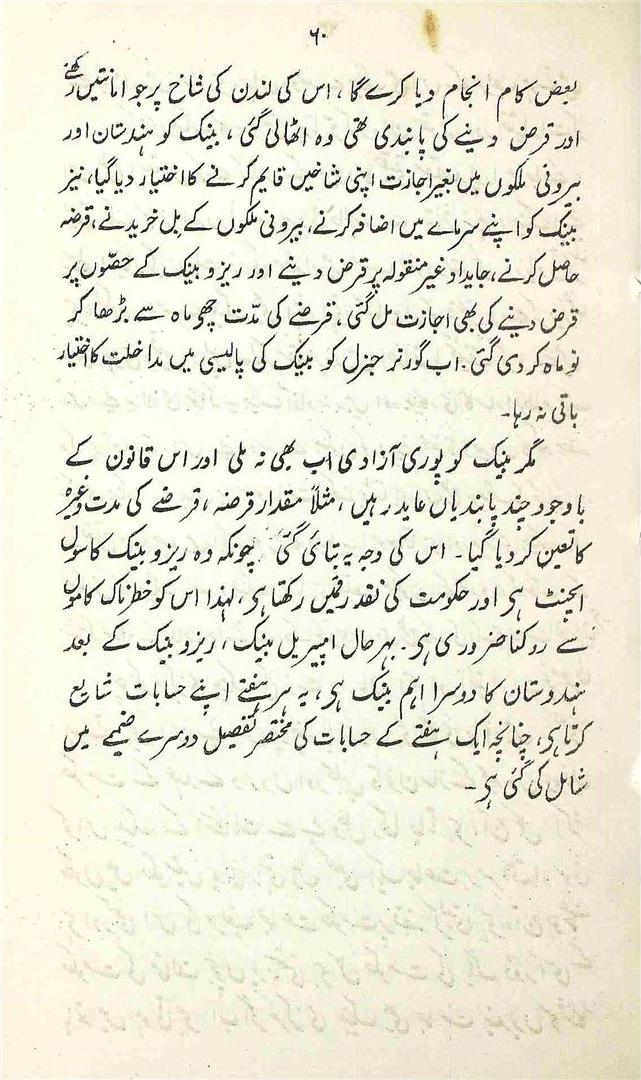 ۶۰
بعض کام انجام دیا کرے گا، اس کی لندن کی شاخ پر جو امانتیں رکھنے
اور قرض دینے کی پابندی تھی وہ اٹھالی گئی، بینک کو ہندستان اور
بیرونی ملکوں میں بغیر اجازت اپنی شاخیں قایم کرنے کا اختیار دیا گیا، نیز
بینک کو اپنے سرمایے میں اضافہ کرنے، بیرونی ملکوں کے بل خریدنے، قرضہ
حاصل کرنے، جایداد غیر منقولہ پر قرض دینے اور ریزو بینک کے حصّوں پر
قرض دینے کی بھی اجازت مل گئی، قرضے کی مدّت چھ ماہ سے بڑھا کر
نو ماہ کر دی گئی. اب گورنر جنرل کو بینک کی پالیسی میں مداخلت کا اختیار
باقی نہ رہا۔
مگر بینک کو پوری آزادی اب بھی نہ ملی اور اس قانون کے
باوجود چند پابندیاں عاید رہیں، مثلاً مقدار قرضہ، قرضے کی مدت وغیرہ
کا تعین کر دیا گیا۔ اس کی وجہ یہ بتائی گئی چونکہ وہ ریزو بینک کا سول
ایجنٹ ہی اور حکومت کی نقد رقمیں رکھتا ہی، لہٰذا اس کو خطرناک کاموں
سے روکنا ضروری ہی۔ بہر حال امپیریل بینک، ریزو بینک کے بعد
ہندوستان کا دوسرا اہم بینک ہی، یہ ہر ہفتے اپنے حسابات شایع
کرتا ہی، چنانچہ ایک ہفتے کے حسابات کی مختصر تفصیل دوسرے ضمیمے میں
شامل کی گئی ہی۔